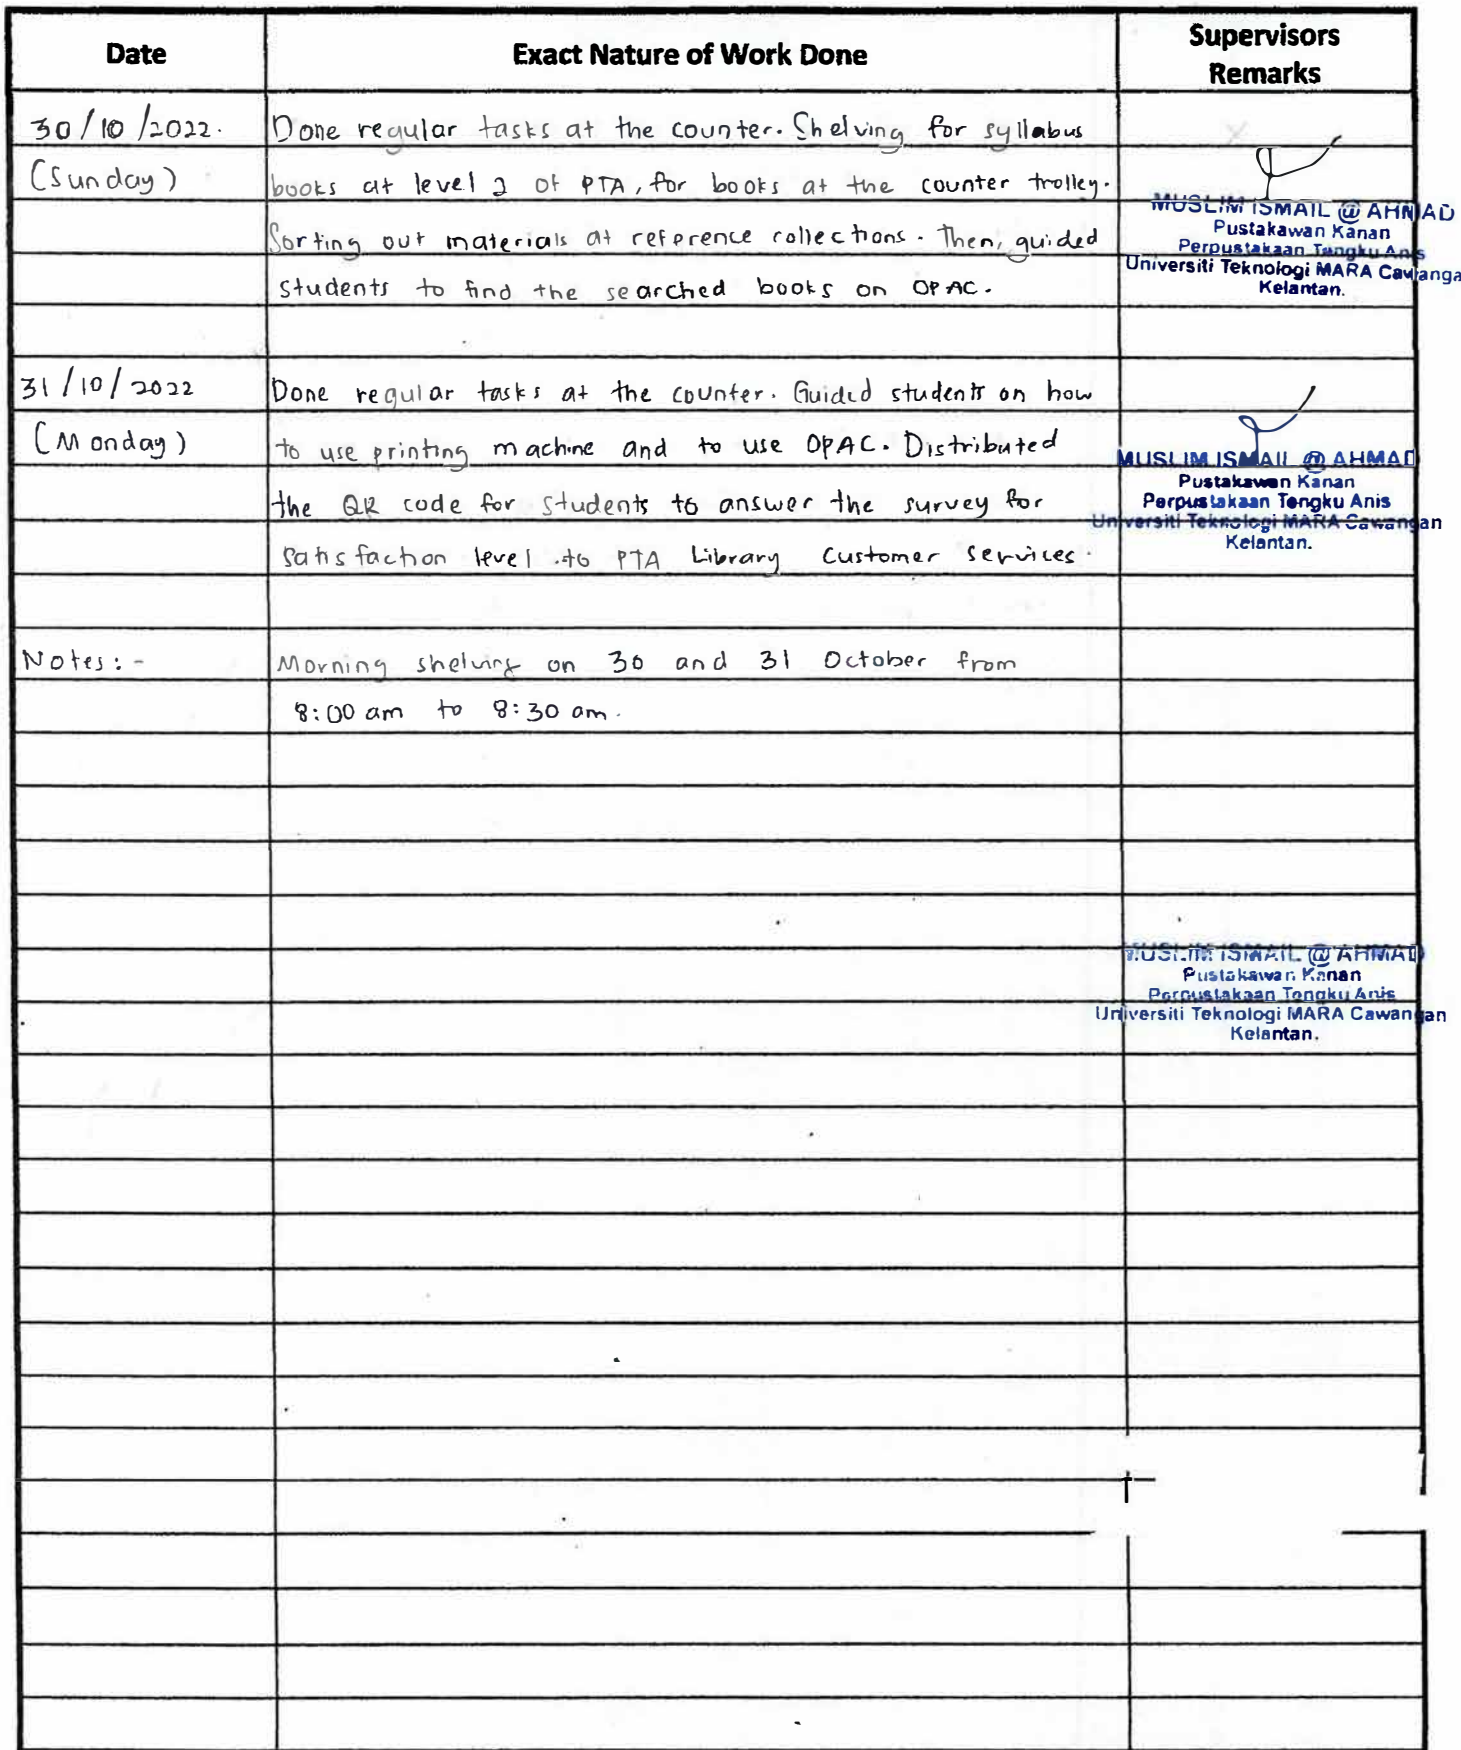 Date Exact Nature of Work Done Supervisors Remarks
30/10/2022. Done regular tasks at the counter. Shelving for syllabus
(Sunday) books at level 2 of PTA, for books at the counter trolley.
Sorting out materials at reference collections. Then, guided
students to find the searched books on OPAC.
MUSLIM ISMAIL @ AHMAD
Pustakawan Kanan
Perpustakaan Tengku Anis
Universiti Teknologi MARA Cawanga
Kelantan.
31/10/2022 Done regular tasks at the counter. Guided students on how
(Monday) to use printing machine and to use OPAC. Distributed
the QR code for students to answer the survey for
satisfaction level to PTA Library Customer services.
MUSLIM ISMAIL @ AHMAD
Pustakawan Kanan
Perpustakaan Tengku Anis
Universiti Teknologi MARA Cawangan
Kelantan.
Notes:- Morning shelving on 30 and 31 October from
8:00 am to 8:30 am.
MUSLIM ISMAIL @ AHMAD
Pustakawan Kanan
Perpustakaan Tengku Anis
Universiti Teknologi MARA Cawangan
Kelantan.